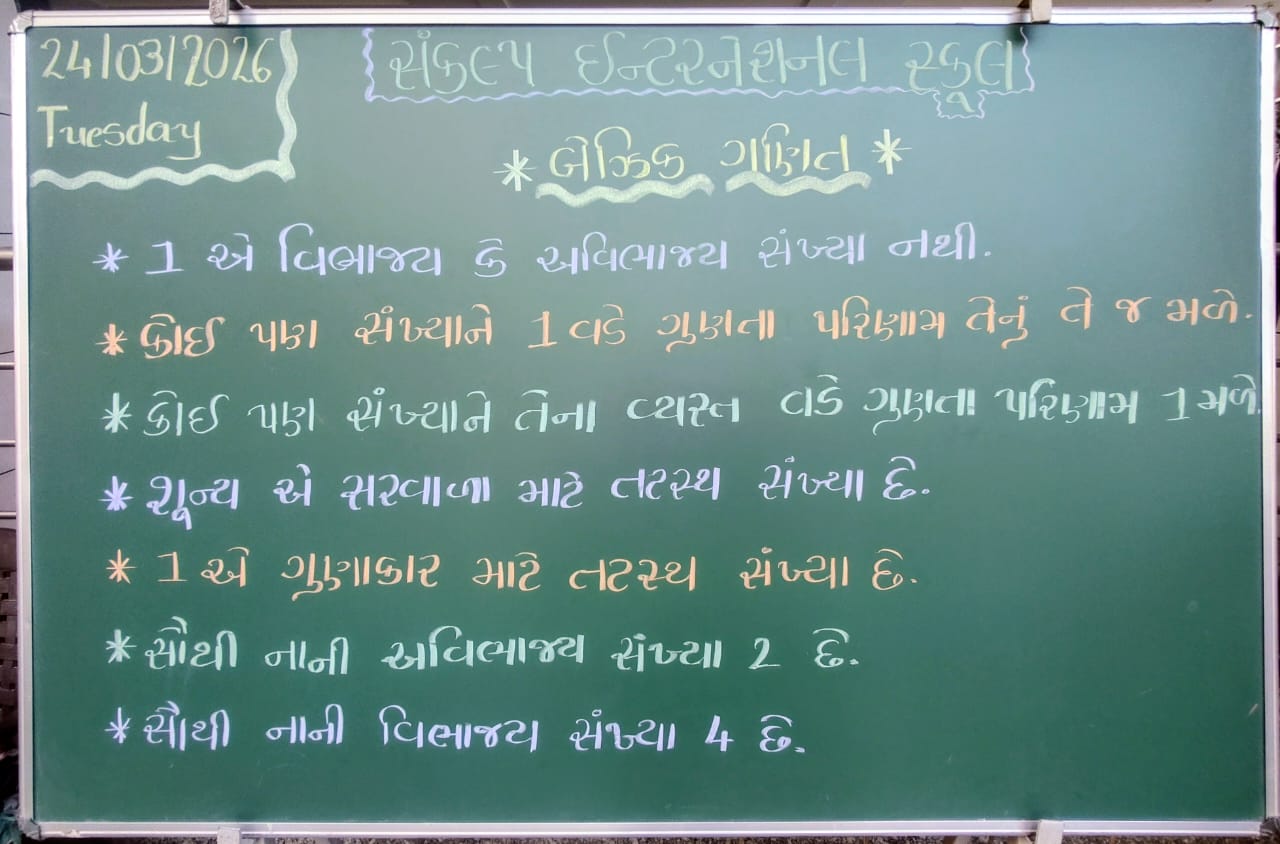 24/03/2026
Tuesday
સંકલ્પ ઈન્ટરનેશનલ સ્કૂલ
* બેઝિક ગણિત *
* 1 એ વિભાજ્ય કે અવિભાજ્ય સંખ્યા નથી.
* કોઈ પણ સંખ્યાને 1 વડે ગુણતા પરિણામ તેનું તે જ મળે.
* કોઈ પણ સંખ્યાને તેના વ્યસ્ત વડે ગુણતા પરિણામ 1 મળે.
* શૂન્ય એ સરવાળા માટે તટસ્થ સંખ્યા છે.
* 1 એ ગુણાકાર માટે તટસ્થ સંખ્યા છે.
* સૌથી નાની અવિભાજ્ય સંખ્યા 2 છે.
* સૌથી નાની વિભાજ્ય સંખ્યા 4 છે.